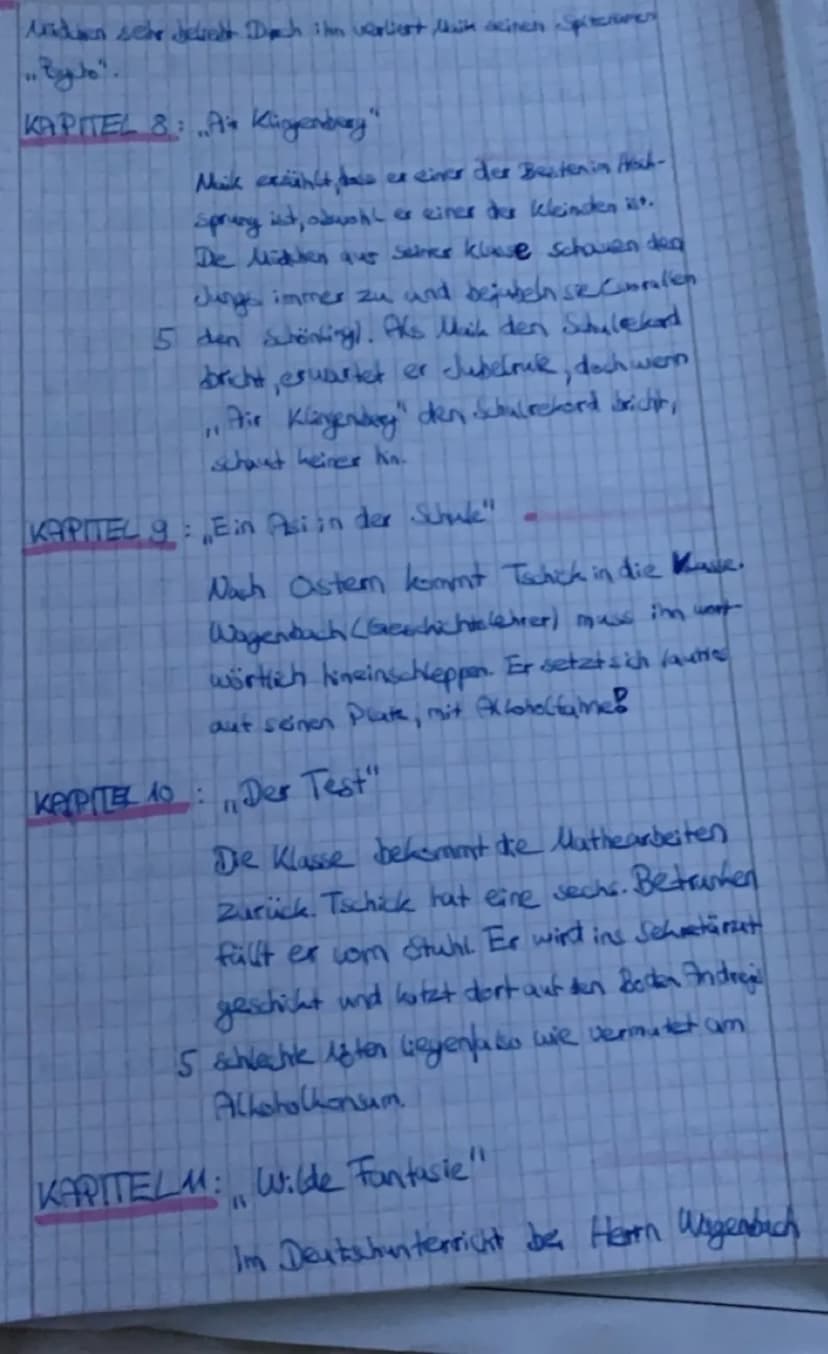 Mädchen sehr beliebt. Doch ihn verliert Maik seinen Spitznamen
„Psycho".
KAPITEL 8: „Air Klingenberg"
Maik erzählt, dass er einer der Besten in Hoch-
sprung ist, obwohl er einer der Kleinsten ist.
Die Mädchen aus seiner Klasse schauen den
Jungs immer zu und bejubeln sie (vor allem
5 den Schönling). Als Maik den Schulrekord
bricht, erwartet er Jubelrufe, doch wenn
„Air Klingenberg" den Schulrekord bricht,
schaut keiner hin.
KAPITEL 9: „Ein Asi in der Schule"
Nach Ostern kommt Tschick in die Klasse.
Wagenbach (Geschichtslehrer) muss ihn wort-
wörtlich hineinschleppen. Er setzt sich lautlos
auf seinen Platz, mit Alkoholfahne!
KAPITEL 10: „Der Test"
Die Klasse bekommt die Mathearbeiten
zurück. Tschick hat eine sechs. Betrunken
fällt er vom Stuhl. Er wird ins Sekretariat
geschickt und kotzt dort auf den Boden. Andrejs
5 schlechte Noten liegen also wie vermutet am
Alkoholkonsum.
KAPITEL 11: „Wilde Fantasie"
Im Deutschunterricht bei Herrn Wagenbach